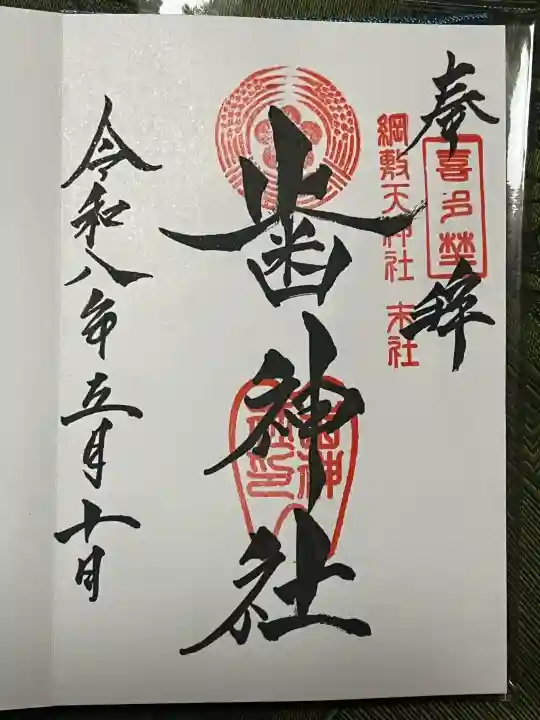 奉拝
喜多埜
綱敷天神社 末社
歯神社
歯神社印
令和八年五月十日